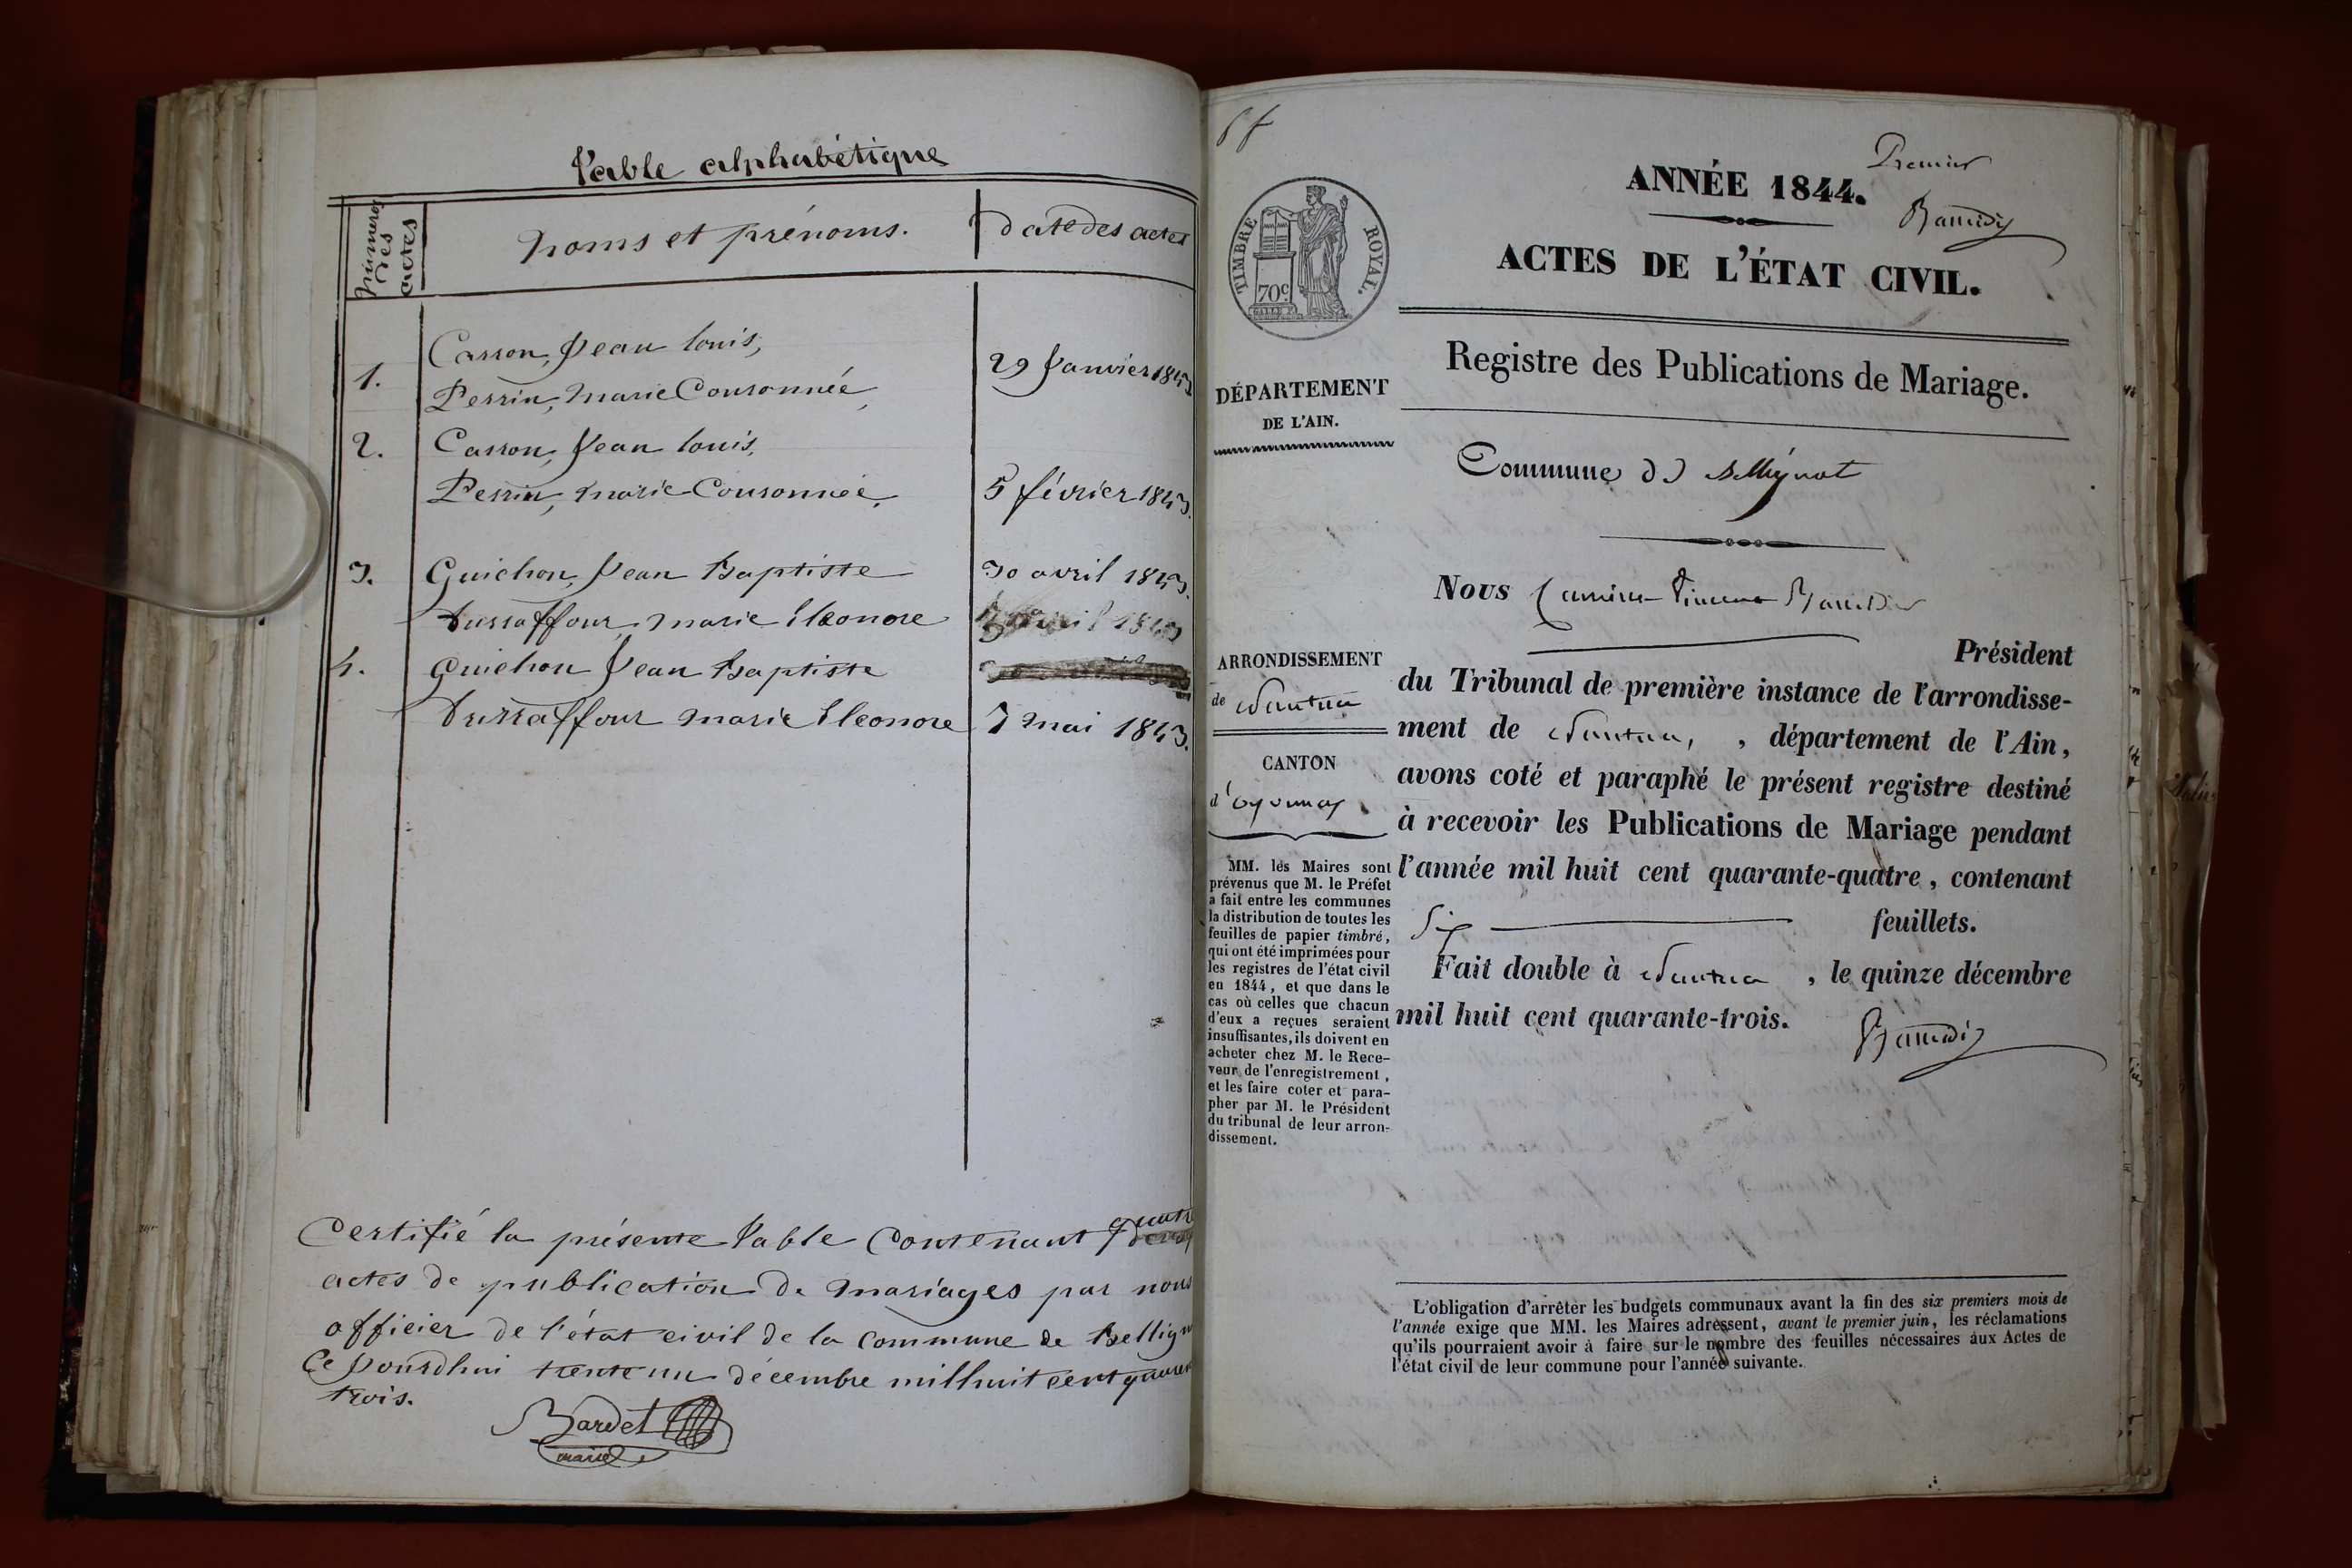 Table alphabétique
Numéros des actes
Noms et prénoms.
date des actes
1.
Carron, Jean louis,
Perrin, Marie Couronnée,
29 Janvier 1843
2.
Carron, Jean louis,
Perrin, marie Couronnée,
5 février 1843.
3.
Guichon, Jean Baptiste
30 avril 1843.
Dussaffour, marie Eléonore
avril 1843
4.
Guichon Jean Baptiste
Dussaffour marie Eleonore
7 mai 1843.
Certifié la présente table contenant quatre
actes de publication de Mariages par nous
officier de l'état civil de la commune de Bellign
Ce Jourdhui trente un décembre mil huit cent quaren
trois.
Bardet
maire
6 f
Premier
ANNÉE 1844.
Ramidi
TIMBRE ROYAL.
70 c.
ACTES DE L'ÉTAT CIVIL.
Registre des Publications de Mariage.
DÉPARTEMENT
DE L'AIN.
Commune de Bellignat
Nous
Président
ARRONDISSEMENT
de Nantua
CANTON
d'oyonnax
du Tribunal de première instance de l'arrondisse-
ment de Nantua, , département de l'Ain,
avons coté et paraphé le présent registre destiné
à recevoir les Publications de Mariage pendant
l'année mil huit cent quarante-quatre, contenant
Six feuillets.
Fait double à Nantua , le quinze décembre
mil huit cent quarante-trois.
MM. les Maires sont
prévenus que M. le Préfet
a fait entre les communes
la distribution de toutes les
feuilles de papier timbré,
qui ont été imprimées pour
les registres de l'état civil
en 1844, et que dans le
cas où celles que chacun
d'eux a reçues seraient
insuffisantes, ils doivent en
acheter chez M. le Rece-
veur de l'enregistrement,
et les faire coter et para-
pher par M. le Président
du tribunal de leur arron-
dissement.
L'obligation d'arrêter les budgets communaux avant la fin des six premiers mois de
l'année exige que MM. les Maires adressent, avant le premier juin, les réclamations
qu'ils pourraient avoir à faire sur le nombre des feuilles nécessaires aux Actes de
l'état civil de leur commune pour l'année suivante.